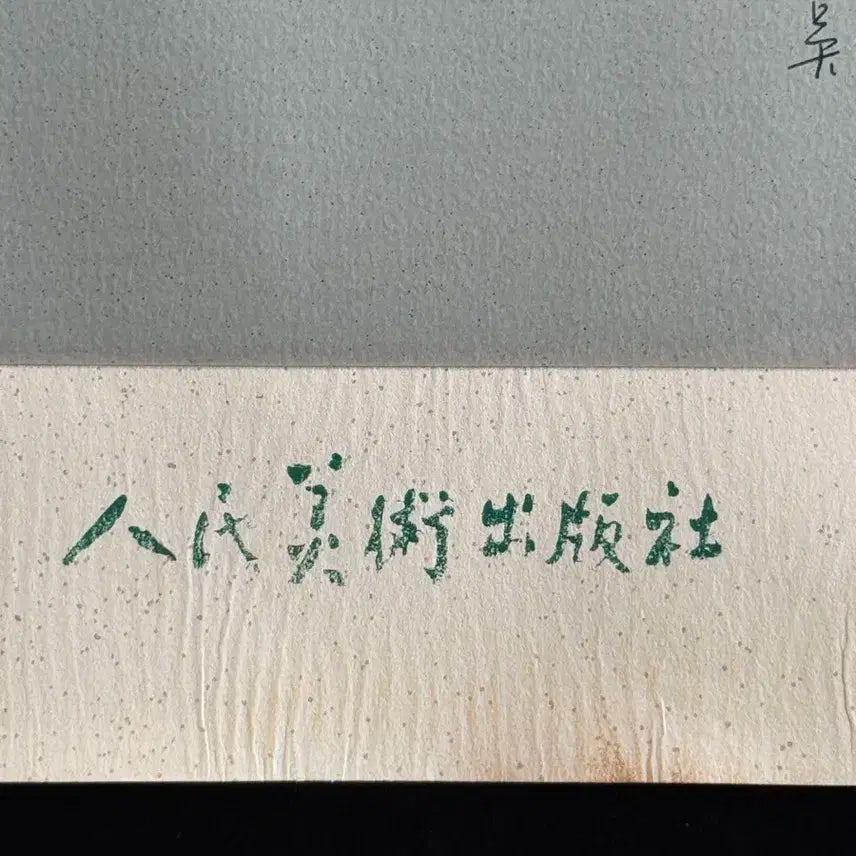 吴
人民美術出版社